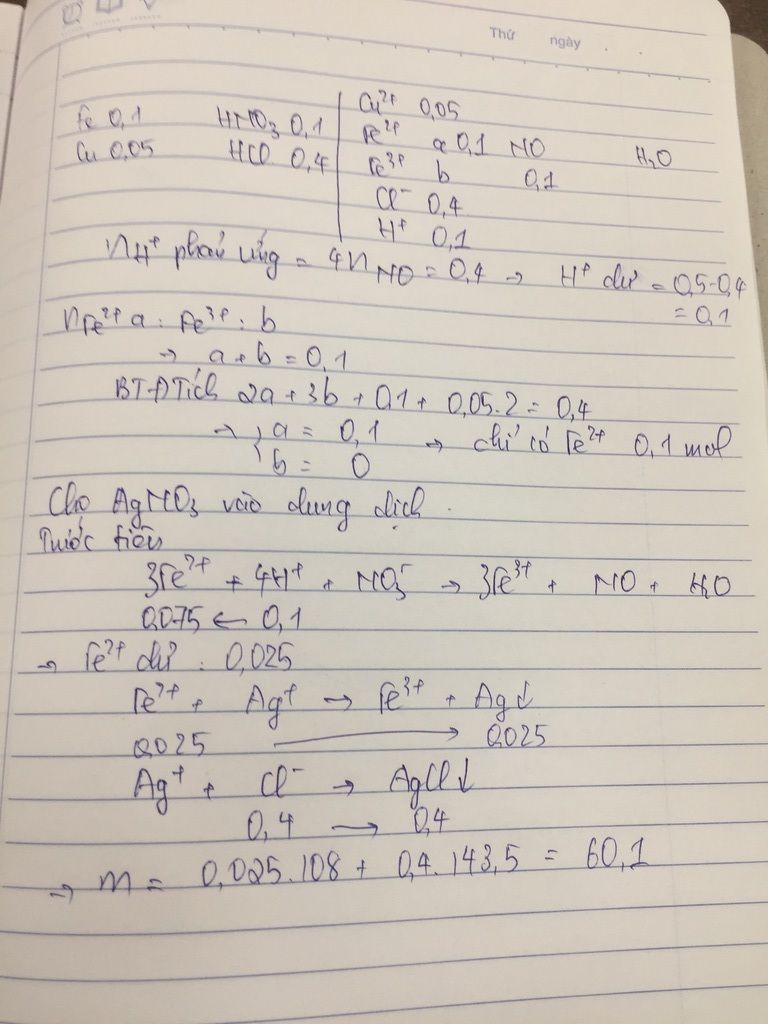 Thứ ngày . .
Fe 0,1 HNO3 0,1 Cu²⁺ 0,05
Cu 0,05 HCl 0,4 Fe²⁺ a 0,1 NO H2O
Fe³⁺ b 0,1
Cl⁻ 0,4
H⁺ 0,1
nH⁺ phản ứng = 4nNO = 0,4 → H⁺ dư = 0,5-0,4
= 0,1
nFe²⁺ a : Fe³⁺ : b
→ a + b = 0,1
BT ĐTích 2a + 3b + 0,1 + 0,05.2 = 0,4
→ { a = 0,1 → chỉ có Fe²⁺ 0,1 mol
b = 0
Cho AgNO3 vào dung dịch .
Trước tiên
3Fe²⁺ + 4H⁺ + NO3⁻ → 3Fe³⁺ + NO + H2O
0,075 ← 0,1
→ Fe²⁺ dư : 0,025
Fe²⁺ + Ag⁺ → Fe³⁺ + Ag↓
0,025 → 0,025
Ag⁺ + Cl⁻ → AgCl↓
0,4 → 0,4
→ m = 0,025.108 + 0,4.143,5 = 60,1